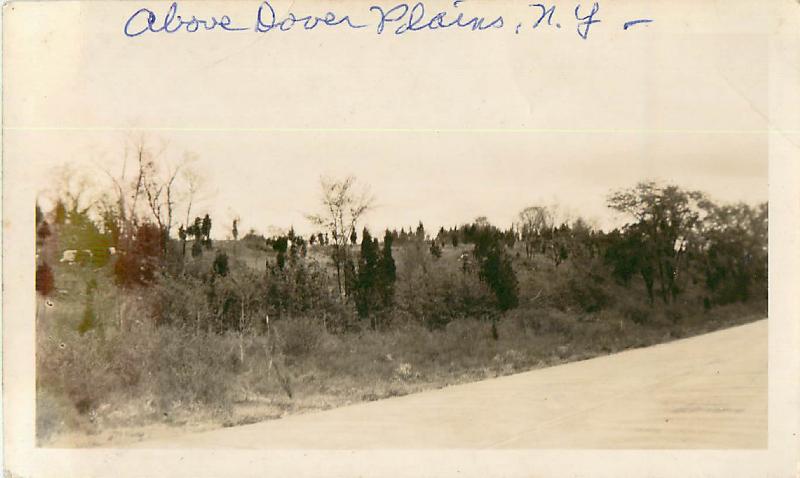 Above Dover Plains, N.Y -